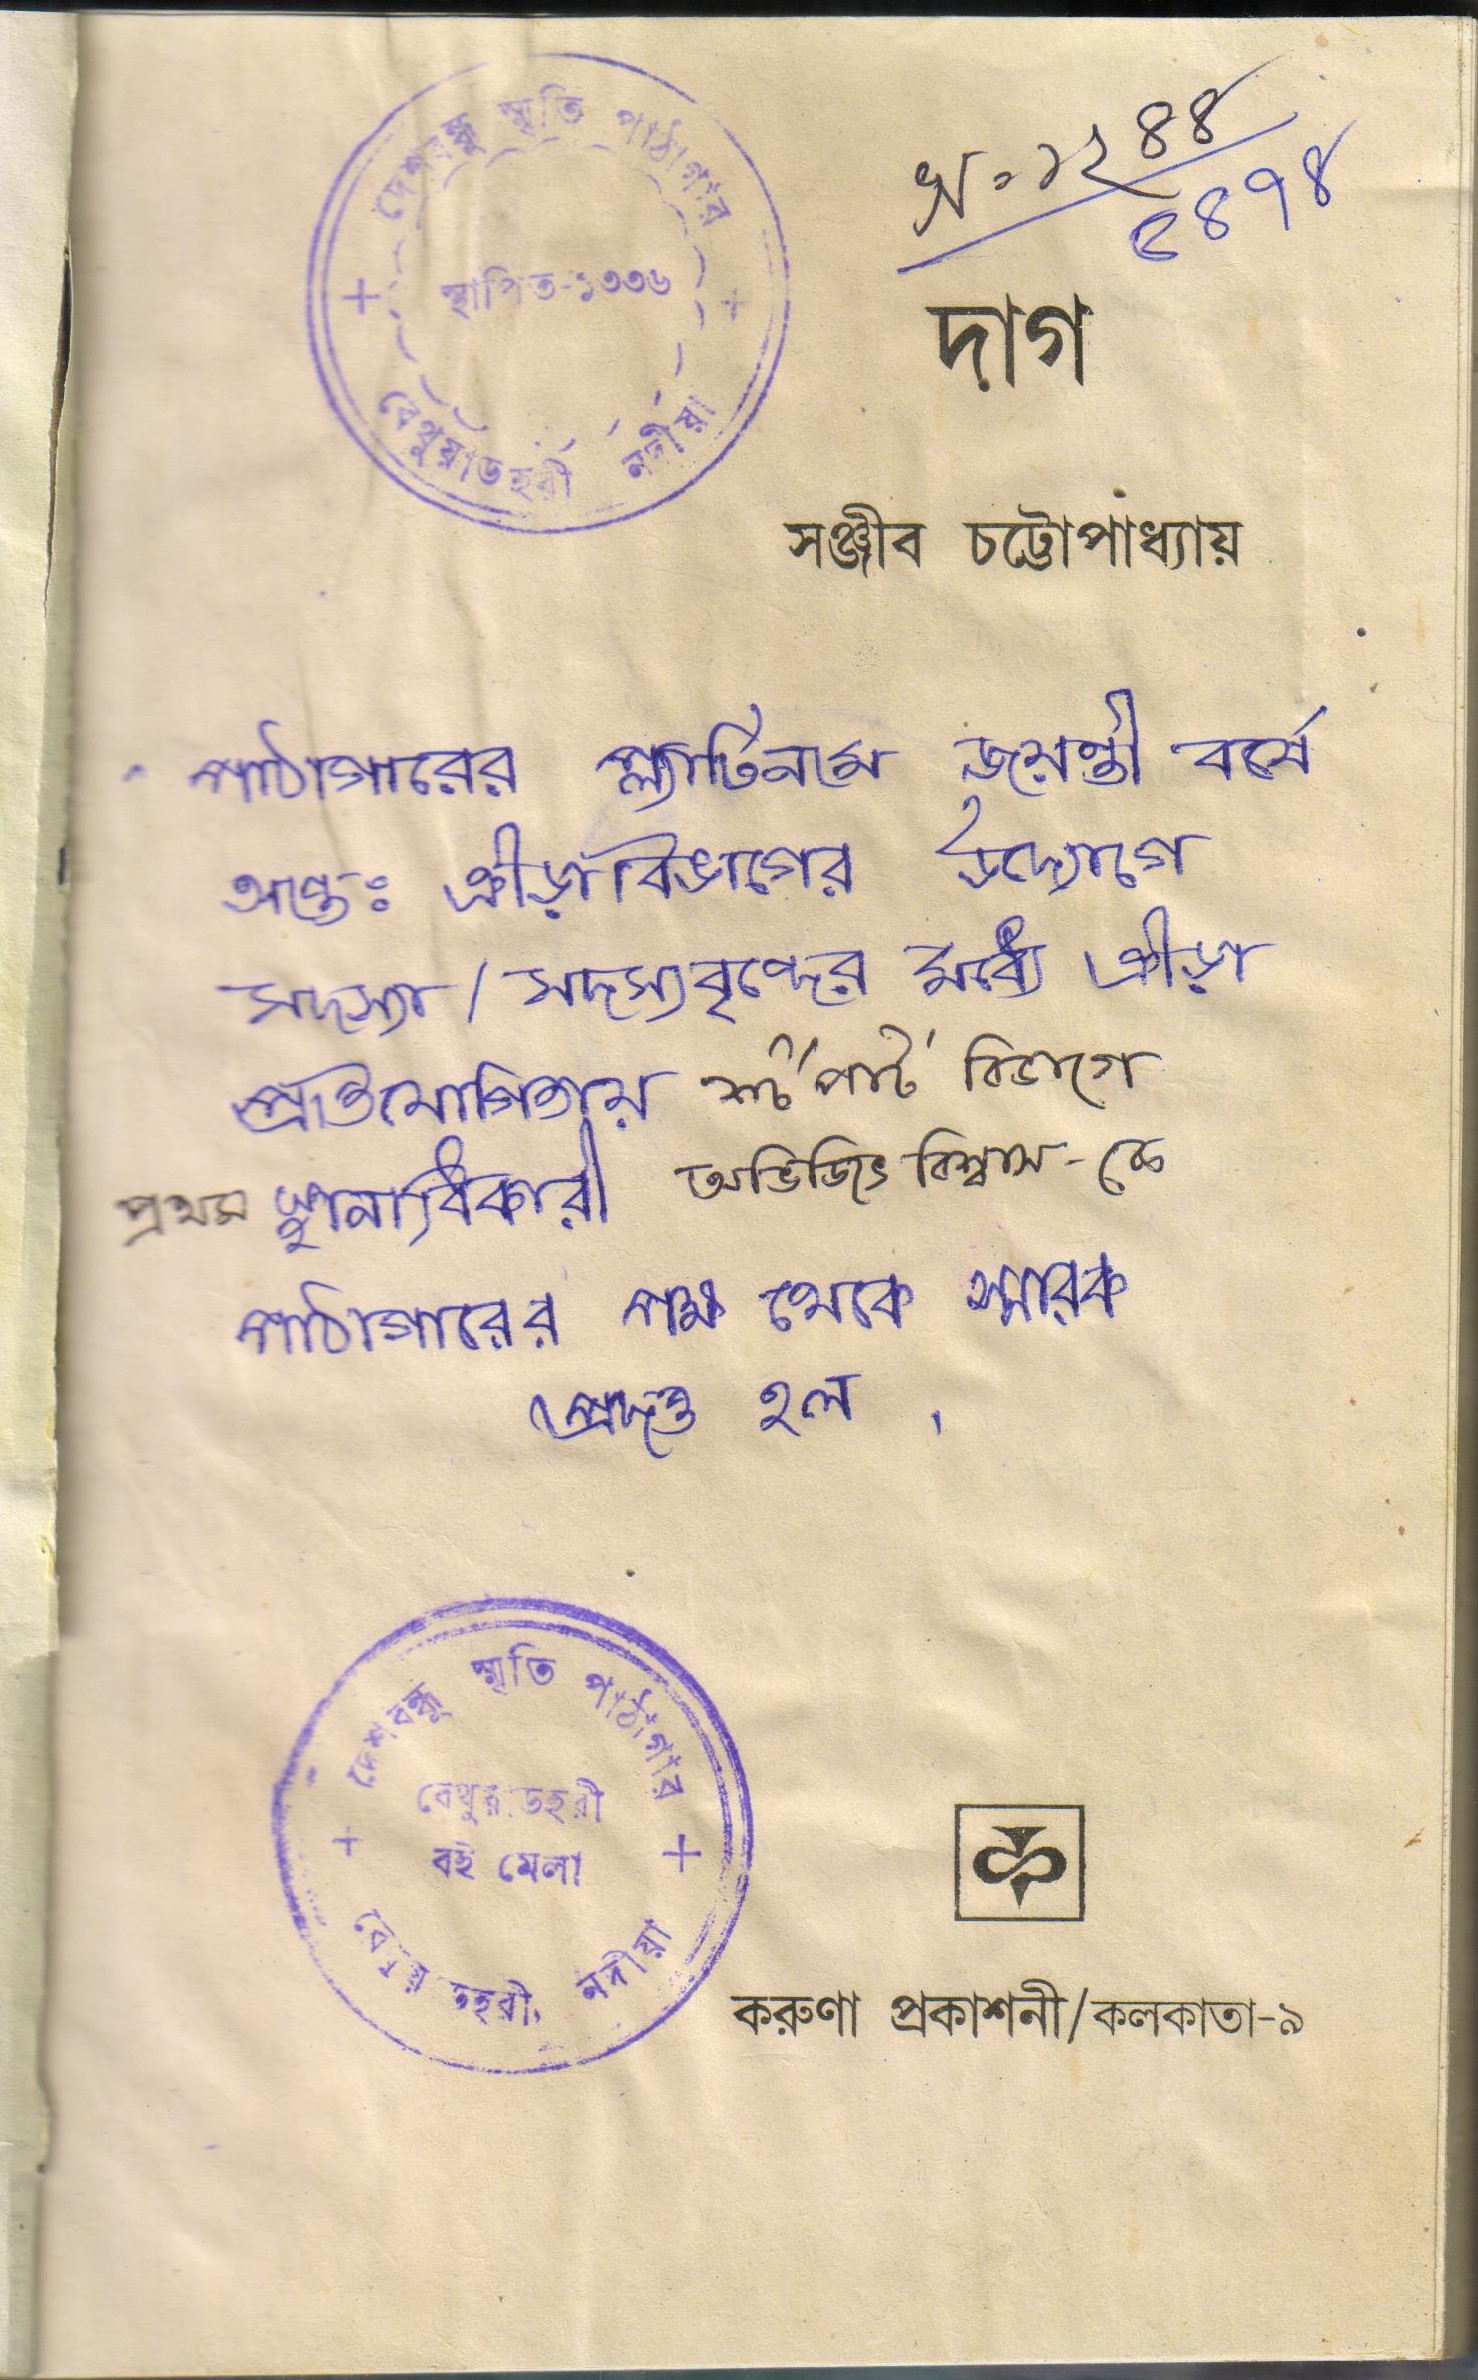 দেশবন্ধু স্মৃতি পাঠাগার
স্থাপিত-১৩৩৬
বেথুয়াডহরী নদীয়া
১২৪৪
৫৪৭৪
দাগ
সঞ্জীব চট্টোপাধ্যায়
পাঠাগারের প্ল্যাটিনাম জয়ন্তী বর্ষে
অন্তঃ ক্রীড়াবিভাগের উদ্যোগে
সদস্যা / সদস্যবৃন্দের মধ্যে ক্রীড়া
প্রতিযোগিতায় শর্ট 'পাট' বিভাগে
প্রথম স্থানাধিকারী অভিজিৎ বিশ্বাস-কে
পাঠাগারের পক্ষ থেকে স্মারক
প্রদত্ত হল ।
দেশবন্ধু স্মৃতি পাঠাগার
বেথুয়াডহরী
বই মেলা
বেথুয়াডহরী, নদীয়া
করুণা প্রকাশনী/কলকাতা-৯